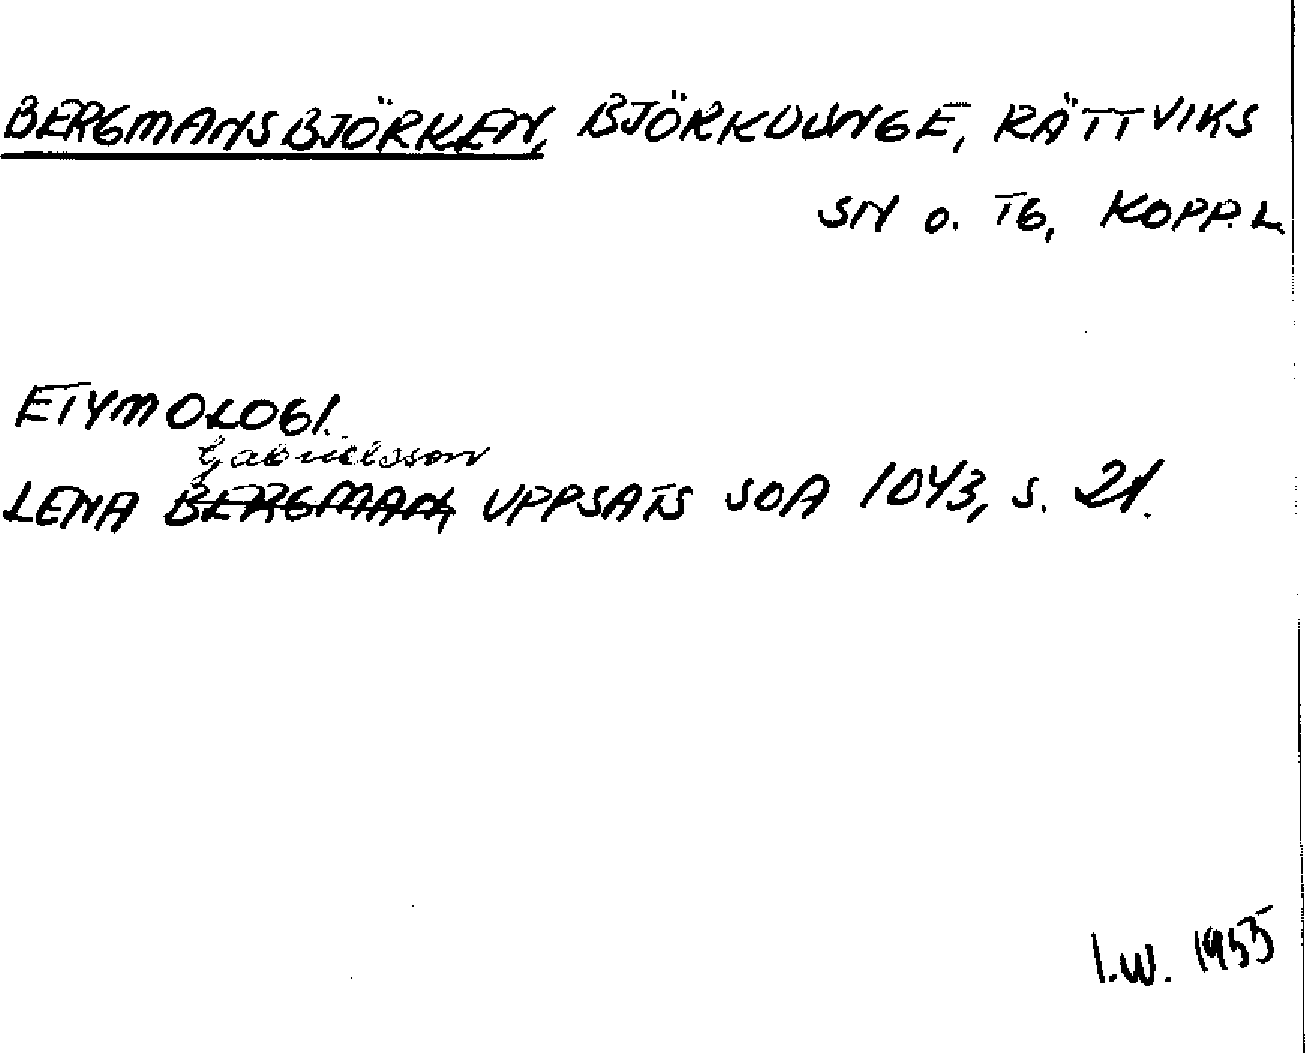 BERGMANSBJÖRKEN, BJÖRKDUNGE, RÄTTVIKS
SN O. TG, KOPP.L
ETYMOLOGI.
Gabrielsson
LENA BERGMAN, UPPSATS SOA 1043, S. 21.
I.W. 1955